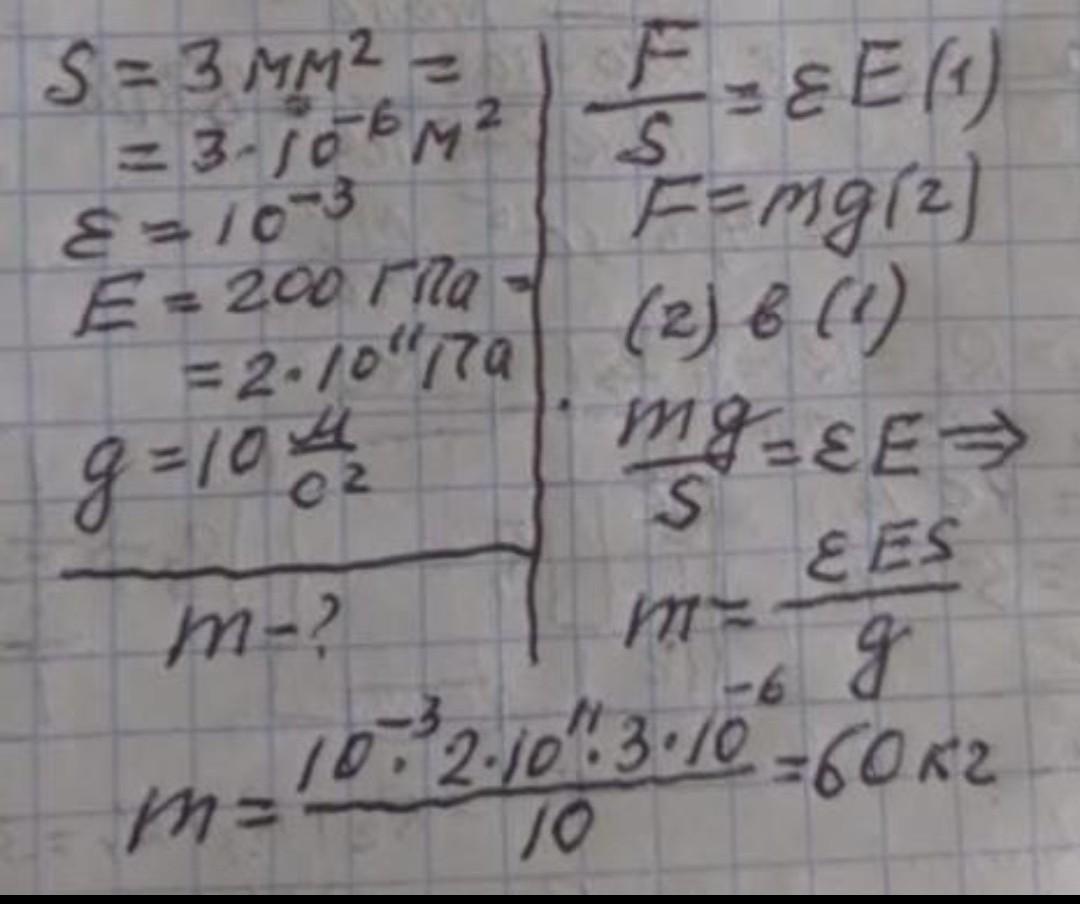 S = 3 мм² =
= 3·10⁻⁶ м²
ε = 10⁻³
E = 200 ГПа =
= 2·10¹¹ Па
g = 10 м/с²
m - ?
F/S = εE (1)
F = mg (2)
(2) в (1)
mg/S = εE ⇒
m = εES/g
m = 10⁻³·2·10¹¹·3·10⁻⁶/10 = 60 кг